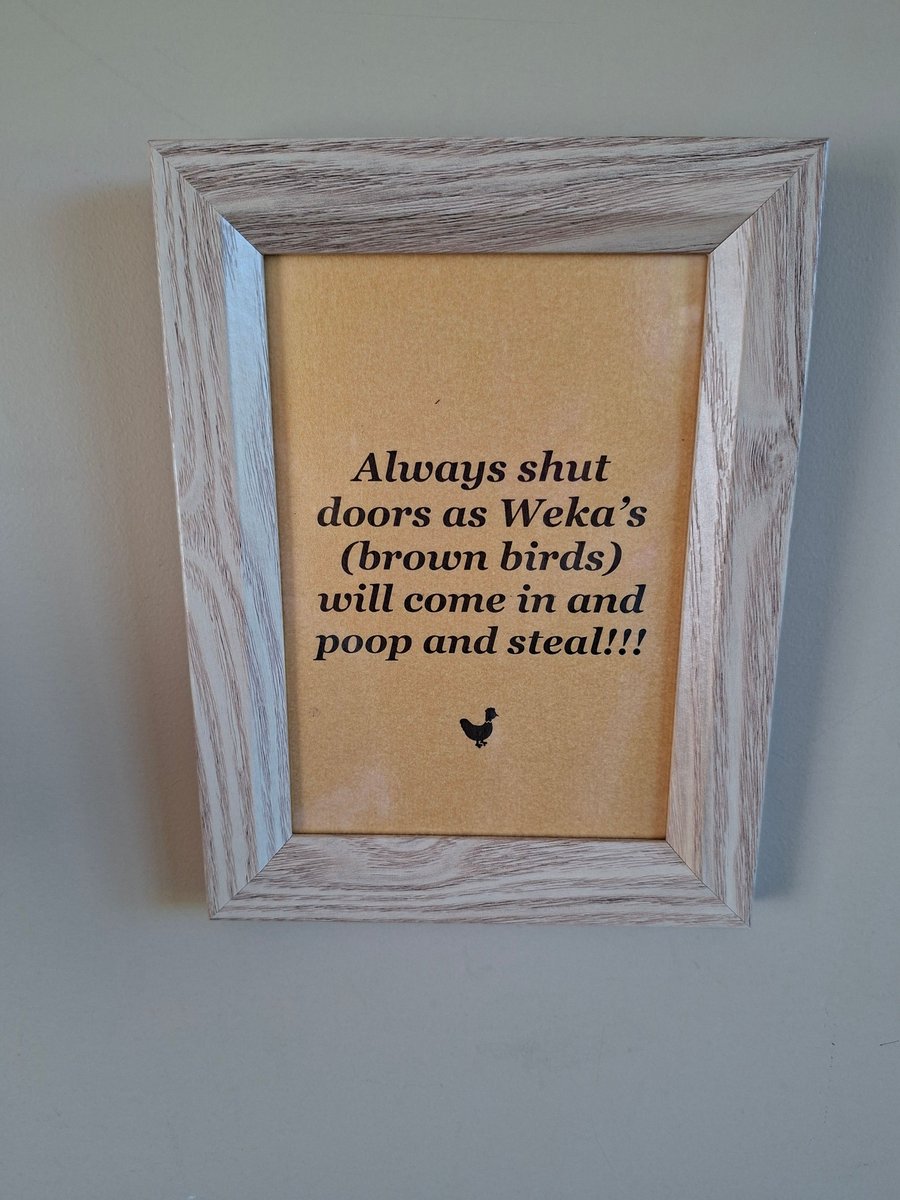 Always shut
doors as Weka’s
(brown birds)
will come in and
poop and steal!!!